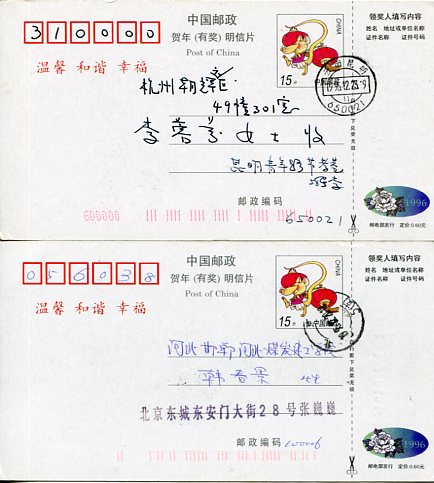 310000
中国邮政
贺年(有奖)明信片
Post of China
温馨 和谐 幸福
CHINA
15分
中国邮政
领奖人填写内容
姓名 地址或单位名称
证件名称 证件号码
650021
杭州朝晖
49幢301室
李蓉芬女士收
昆明青年路
邮政编码
650021
600000
1996
邮电部发行 定价:0.60元
056038
中国邮政
贺年(有奖)明信片
Post of China
温馨 和谐 幸福
CHINA
15分
中国邮政
领奖人填写内容
姓名 地址或单位名称
证件名称 证件号码
河北邯郸河北煤炭建工学校
韩春景
北京东城东安门大街28号张巍巍
邮政编码
100006
1996
邮电部发行 定价:0.60元